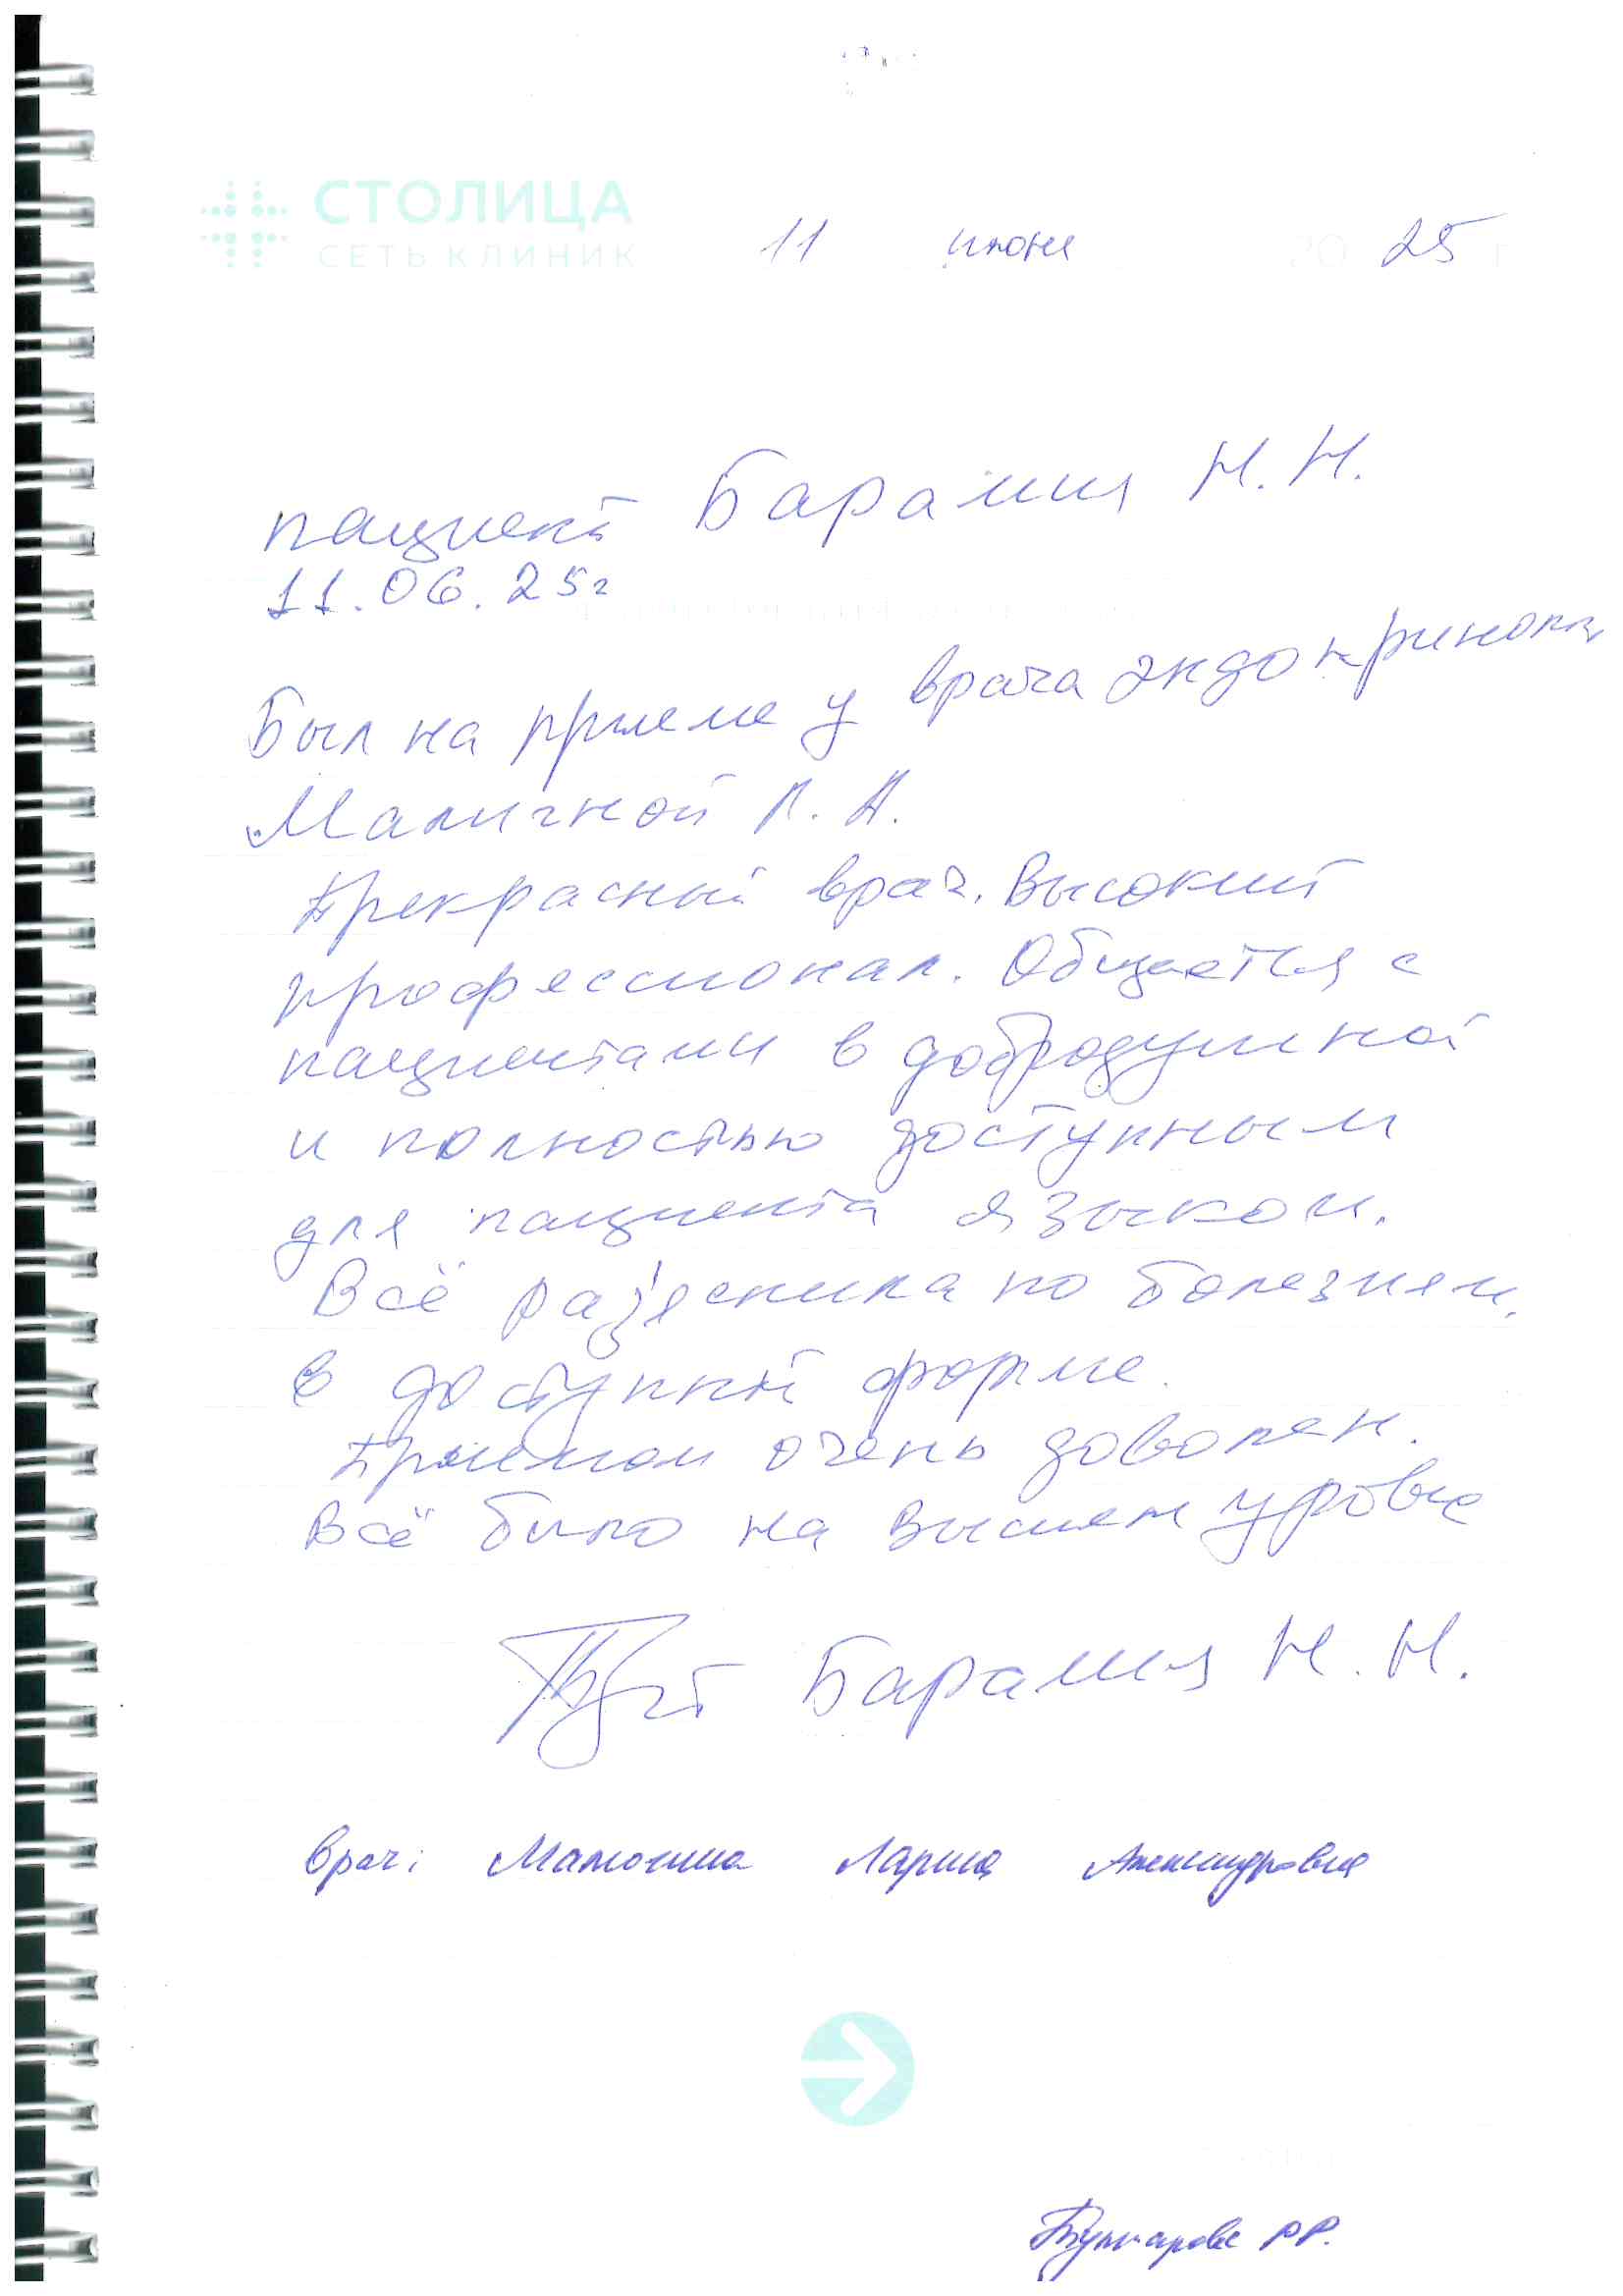 СТОЛИЦА
СЕТЬ КЛИНИК
11 июня 25
пациент Барамия Н. Н.
11.06.25г
Был на приеме у врача эндокринолога
Л. А.
Прекрасный врач. Высокий
профессионал. Общается с
пациентами в добродушной
и полностью доступным
для пациента языком.
Всё разъяснила по болезням.
в доступной форме.
Приемом очень доволен.
Всё было на высшем уровне
Барамия Н. Н.
Врач: Лариса Александровна
Р.Р.